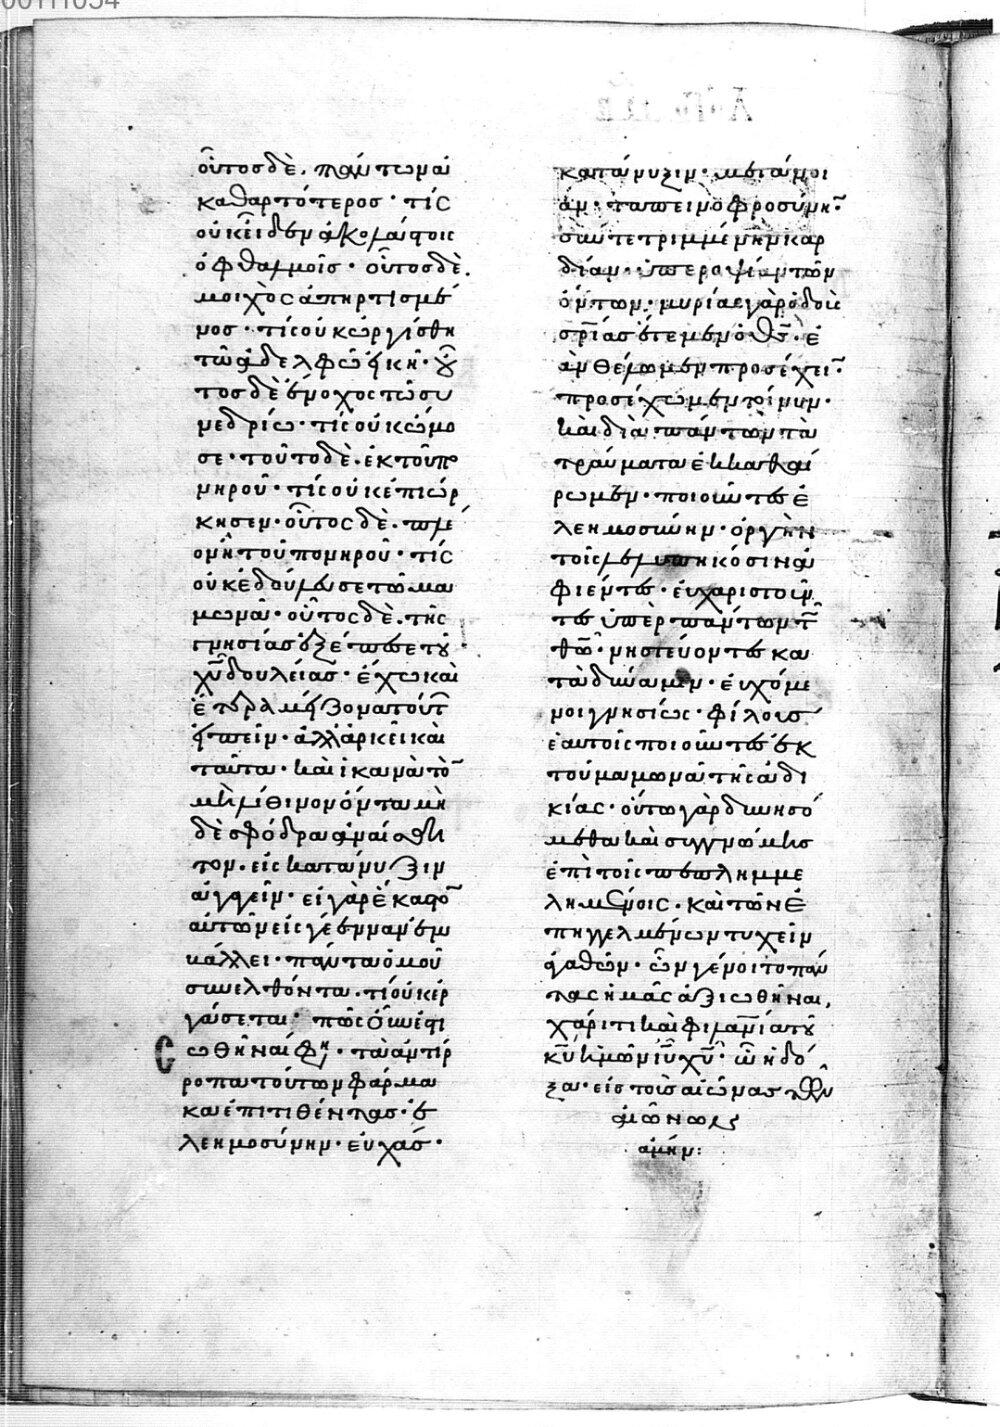 οὗτος δὲ. πάντων ἀ
καθαρτότερος · τίς
οὐκ εἶδεν ἀκολάστοις
ὀφθαλμοῖς · οὗτος δὲ.
μοιχὸς ἀπηρτισμέ
νος · τίς οὐκ ὠργίσθη
τῶ ἀδελφῶ εἰκῆ · οὗ
τος δὲ ἔνοχος τῶ συ
νεδρίω · τίς οὐκ ὤμο
σε · τοῦτο δὲ. ἐκ τοῦ πο
νηροῦ · τίς οὐκ ἐπιώρ
κησεν · οὗτος δὲ. πλέ
ον ἢ τοῦ πονηροῦ · τίς
οὐκ ἐδούλευσε τῶ μα
μωνᾶ · οὗτος δὲ. τῆς
γνησίας ἐξέπεσε τοῦ
χυ δουλείας · ἔχω καὶ
ἕτερα μείζονα τούτ
εἰπεῖν · ἀλλ' ἀρκεῖ καὶ
ταῦτα · καὶ ἱκανὰ τὸ
μὴ λίθινον ὄντα μὴ
δὲ σφόδρα ἀναίσθη
τον. εἰς κατάνυξιν
ἀγαγεῖν · εἰ γὰρ ἕκαστο
αὐτῶν εἰς γέενναν ἐμ
βάλλει · πάντα ὁμοῦ
συνελθόντα. τί οὐκ ἐρ
γάσεται · πῶς οὖν ἔστι
σωθῆναί φη · τὰ ἀντίρ
ροπα τούτων φάρμα
κα ἐπιτιθέντας · ἐ
λεημοσύνην · εὐχάς ·
κατάνυξιν · μετάνοι
αν · ταπεινοφροσύνη ·
συντετριμμένην καρ
δίαν · ὑπεροψίαν τῶν
ὄντων · μυρίας γὰρ ὁδοὺς
σριας ἔτεμεν ὁ θς · ἐ
ὰν θέλωμεν προσέχει ·
προσέχωμεν τοίνυν ·
καὶ διὰ πάντων τὰ
τραύματα ἐκκαθαί
ρωμεν · ποιοῦντες ἐ
λεημοσύνην · ὀργὴν
τοῖς λελυπηκόσιν ἀ
φιέντες · εὐχαριστοῦν
τες ὑπὲρ πάντων τῶ
θω · νηστεύοντες κα
τὰ δύναμιν · εὐχόμε
νοι γνησίως · φίλους
ἑαυτοῖς ποιοῦντες ἐκ
τοῦ μαμωνᾶ τῆς ἀδι
κίας · οὕτω γὰρ δυνησό
μεθα καὶ συγγνώμης
ἐπὶ τοῖς πεπλημμε
λημένοις · καὶ τῶν ἐ
πηγγελμένων τυχεῖν
ἀγαθῶν · ὧν γένοιτο πάν
τας ἡμᾶς ἀξιωθῆναι,
χάριτι καὶ φιλανίᾳ τοῦ
κυ ἡμῶν ιυ χυ · ὧ ἡ δό
ξα · εἰς τοὺς αἰῶνας τῶν
αἰώνων
ἀμήν: